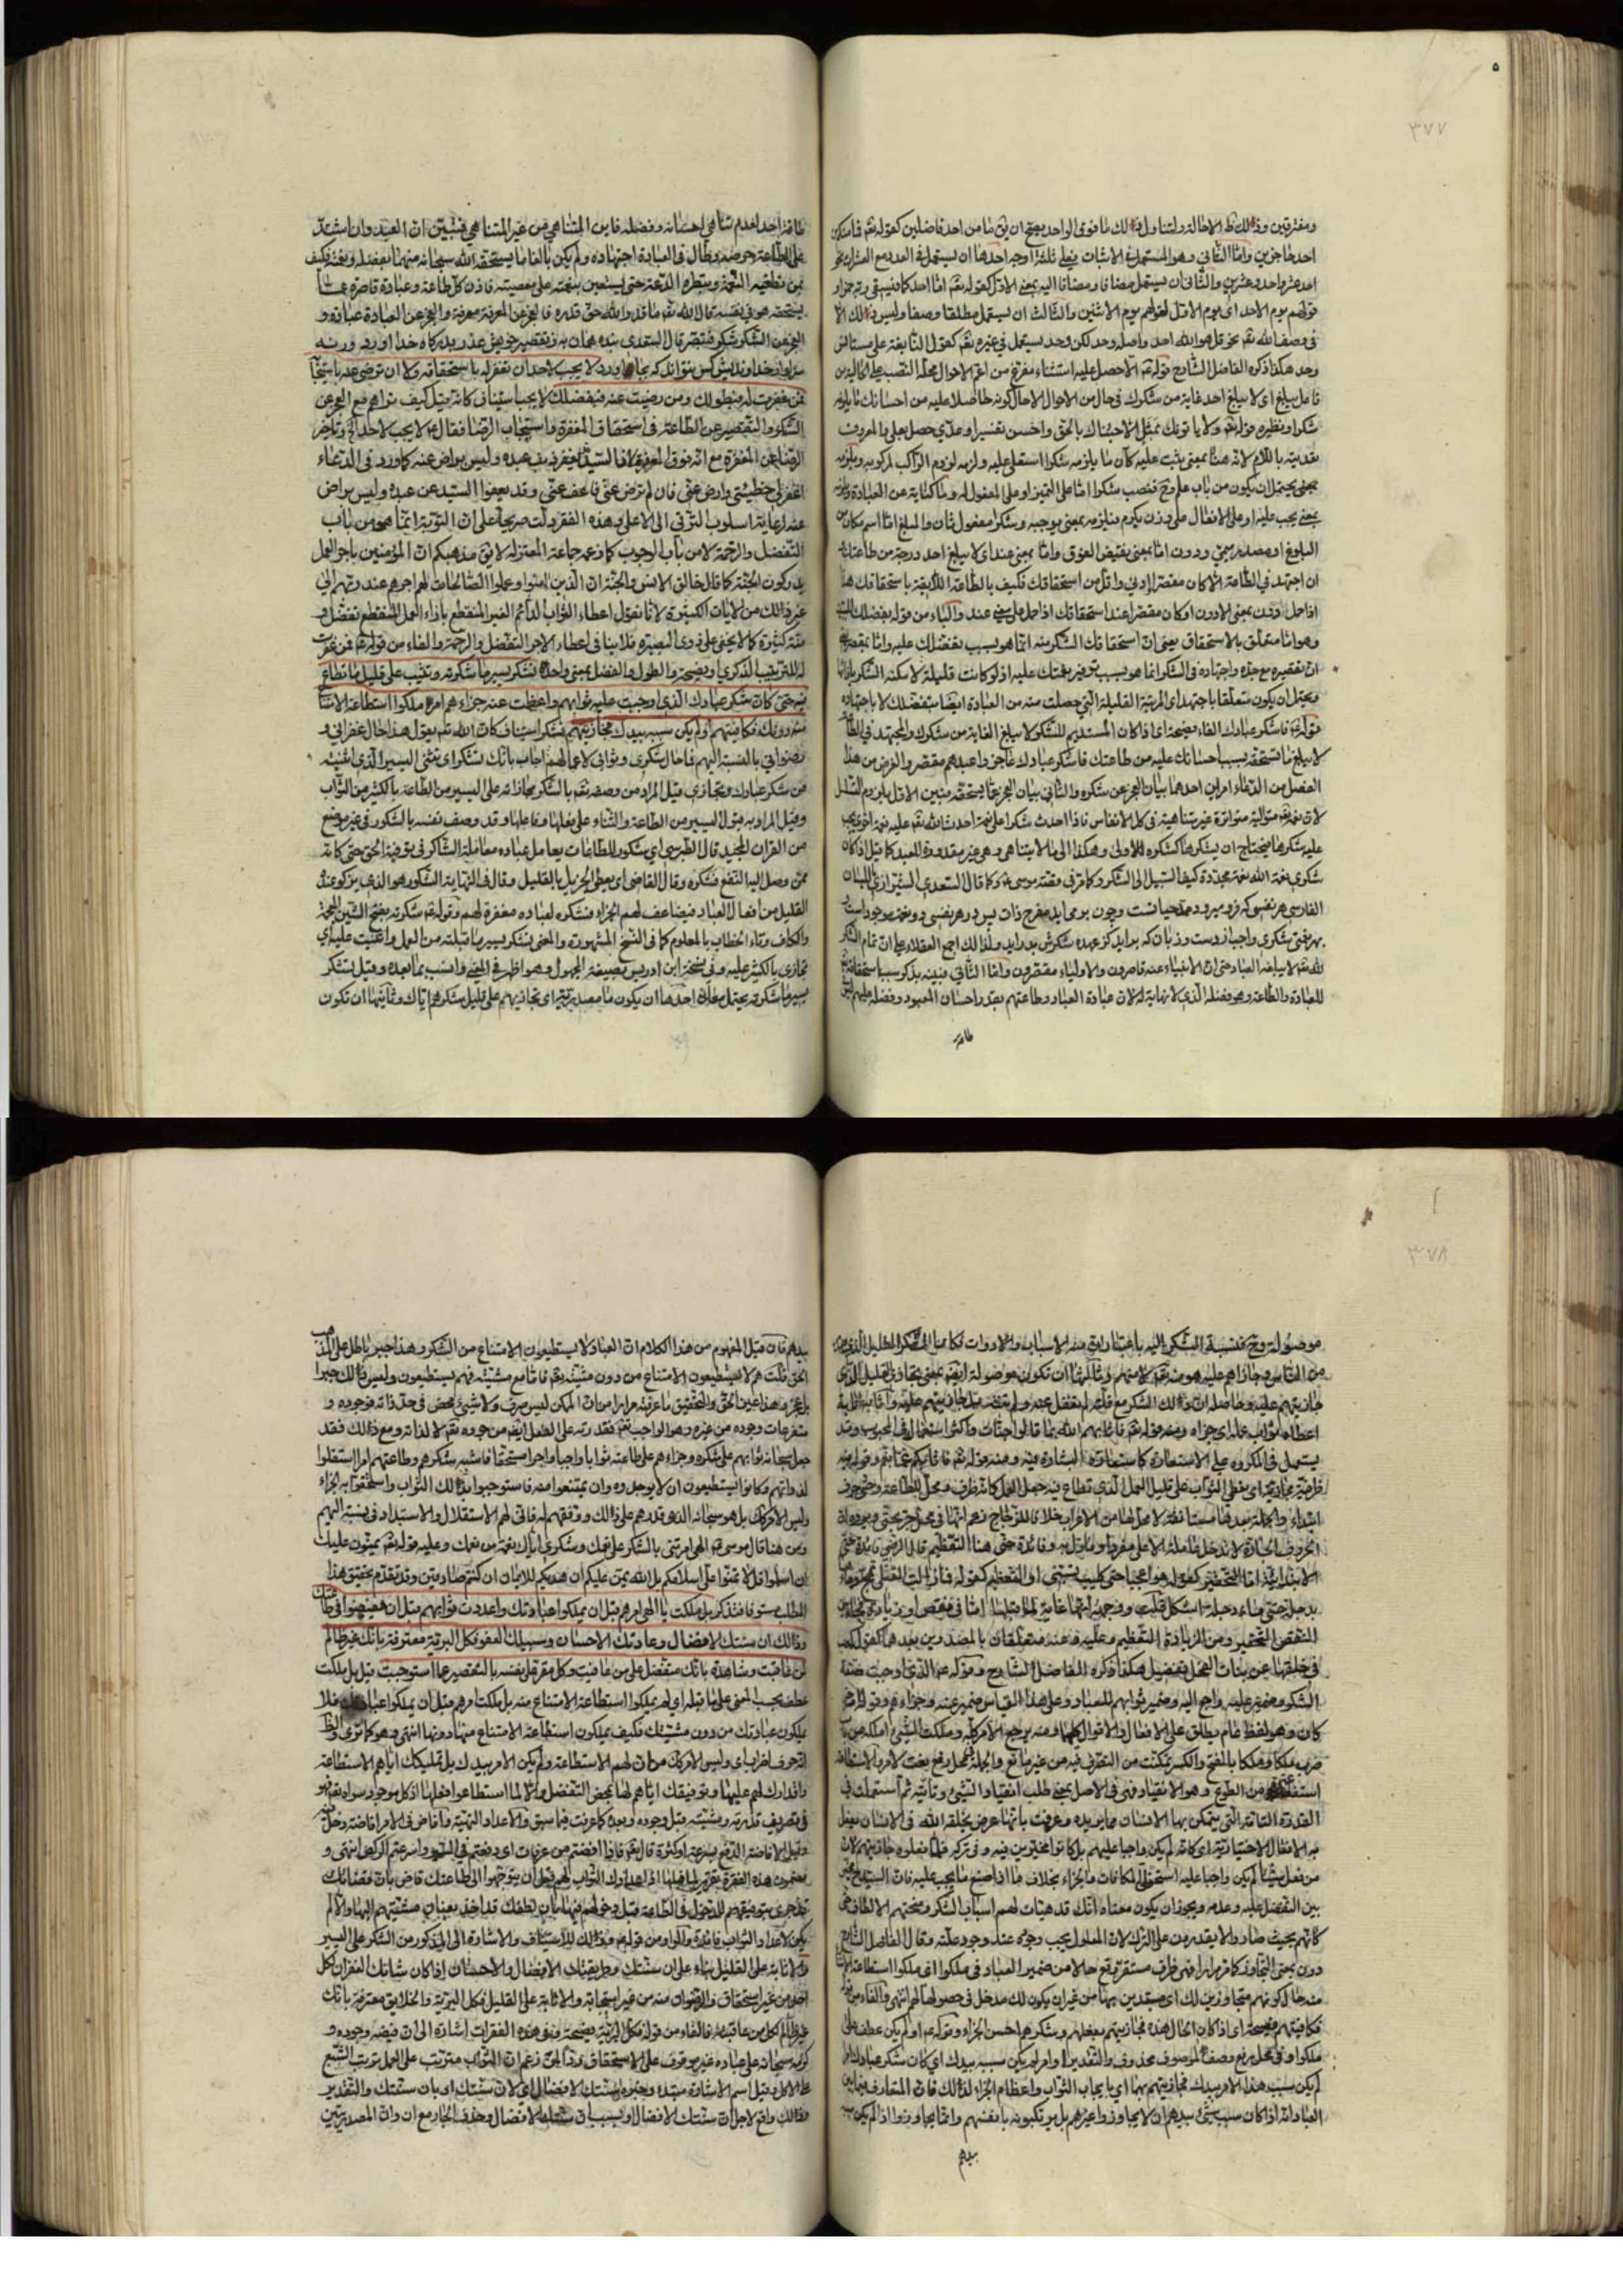 ٣٧٧
ومفترقين وذلك ظ الاحالة ولتناول ذلك ما فوق الواحد يصح ان يق ما من احد فاضلين كقوله تعم فما منكم من
احد حاجزين واما الثاني وهو المستعمل في الاثبات فعلى ثلثة اوجه احدها ان يستعمل في العدد مع العشرات نحو
احد عشر واحد وعشرين والثاني ان يستعمل مضافا ومضافا اليه بمعنى الاول كقوله تعم اما احدكما فيسقي ربه خمرا و
قولهم يوم الاحد اي يوم الاول لقولهم يوم الاثنين والثالث ان يستعمل مطلقا وصفا وليس ذلك الا
في وصف الله تعم نحو قل هو الله احد واصله وحد لكن وحد يستعمل في غيره تعم كقول النابغة على مستانس
وحد هكذا ذكره الفاضل الشارح قوله عم الا حصل عليه استثناء مفرغ من اعم الاحوال محله النصب على الحالية من
فاعل يبلغ اي لا يبلغ احد غاية من شكرك في حال من الاحوال الا حال كونه حاصلا عليه من احسانك ما يلزمه
شكرا ونظيره قوله تعم ولا ياتونك بمثل الا جئناك بالحق واحسن تفسيرا وعدي حصل بعلى والمعروف
تعديته باللام لانه هنا بمعنى يثبت عليه كان ما يلزمه شكرا استعلى عليه ولزمه لزوم الراكب لمركوبه ويلزمه
البلوغ او مصدر ميمي ودون اما بمعنى نقيض الفوق واما بمعنى عند اي لا يبلغ احد درجة من طاعتك و
ان اجتهد في الطاعة الا كان مقصرا ادنى واقل من استحقاقك فكيف بالطاعة اللايقة باستحقاقك هذا
وهو اما متعلق بالاستحقاق يعني ان استحقاقك الشكر منه انما هو بسبب بفضلك عليه واما بمقصرا
ان تقصيره مع جده واجتهاده في الشكر انما هو بسبب توفير نعمتك عليه اذ لو كانت قليلة لامكنه الشكر بازائها
ويحتمل ان يكون متعلقا باجتهد اي المرتبة القليلة التي حصلت منه من العبادة ايضا بتفضلك لا باجتهاده
قوله عم فاشكر عبادك الفاء فصيحة اي اذا كان المستديم للشكر لا يبلغ الغاية من شكرك والمجتهد في الطاعة
لا يبلغ ما تستحقه بسبب احسانك عليه من طاعتك فاشكر عبادك عاجز واعبدهم مقصر والغرض من هذا
الفصل من الدعاء امران احدهما بيان العجز عن شكره والثاني بيان العجز عما يستحقه فبين الاول بلزوم التسلسل
لان نعمه تعم متوالية متواترة غير متناهية في كل الانفاس فاذا احدث شكرا على نعمة احدث الله تعم عليه نعمة اخرى يجب
عليه شكرها فيحتاج ان يشكرها كشكره للاولى وهكذا الى ما لا يتناهى وهي غير مقدورة للعبد كما قيل اذا كان
شكري نعمة الله نعمة مجددة كيف السبيل الى الشكر وكما مر في قصة موسى عم وكما قال السعدي الشيرازي باللسان
الفارسي هر نفسي كه فرو ميرود ممد حياتست وچون برمي ايد مفرح ذات پس در هر نفسي دو نعمت موجود است و
بهر نعمتي شكري واجب از دست وزبان كه برايد كز عهده شكرش بدر ايد ولذلك اجمع العقلاء على ان تمام الشكر
لله تعم لا يبلغه العباد حتى ان الانبياء عنه قاصرون والاولياء مقصرون واما الثاني فبينه بذكر سبب استحقاقه تعم
للعبادة والطاعة وهو فضله الذي لا نهاية له لان عبادة العباد وطاعتهم بقدر احسان المعبود وفضله عليهم وليس
طاقة
طاقة احد لعدم تناهي احسانه وفضله فاين المتناهي من غير المتناهي فتبين ان العبد وان اشتد
على الطاعة حرصه وطال في العبادة اجتهاده ولم يكن بالغا ما يستحقه الله سبحانه منهما بفضله ونعمه فكيف
بمن تطغيه النعمة وتبطره الدعة حتى يستعين بنعمته على معصيته فاذن كل طاعة وعبادة قاصرة عما
يستحقه هو في نفسه قال الله تعم ما قدروا الله حق قدره فالعجز عن المعرفة معرفة والعجز عن العبادة عبادة و
العجز عن الشكر شكر فتبصر قال السعدي بنده همان به ز تقصير خويش عذر بدرگاه خدا اورد ورنه
سزاوار خداونديش كس نتواند كه بجا اورد لا يجب لاحد ان تغفر له باستحقاقه ولا ان ترضى عنه باستيجابه
فمن غفرت له فبطولك ومن رضيت عنه فبفضلك لا يجب استيناف كانه قيل كيف تراهم مع العجز عن
الشكر والتقصير عن الطاعة في استحقاق المغفرة واستيجاب الرضا فقال عم لا يجب لاحد الخ وتاخير
الرضا عن المغفرة مع انه فوق المغفرة لان السيد قد يغفر ذنب عبده وليس براض عنه كما ورد في الدعاء
اغفر لي خطيئتي وارض عني فان لم ترض عني فاعف عني وقد يعفوا السيد عن عبده وليس براض
عنه لرعاية اسلوب الترقي الى الاعلى وهذه الفقرة دلت صريحا على ان التوبة انما هو من باب
التفضل والرحمة لا من باب الوجوب كما زعمه جماعة المعتزلة لا يق مذهبكم ان المؤمنين باجر العمل
يدركون الجنة كما قال خالق الانس والجنة ان الذين امنوا وعملوا الصالحات لهم اجرهم عند ربهم الى
غير ذلك من الايات الكثيرة لانا نقول اعطاء الثواب الدائم الغير المنقطع بازاء العمل المنقطع تفضل و
منة كثيرة كما لا يخفى على ذوي البصيرة فلا ينافي اعطاء الاجر التفضل والرحمة والفاء من قوله عم فمن غفرت
له للترتيب الذكري او فصيحة والطول والفضل بمعنى واحد تشكر يسير ما شكرته وتثيب على قليل ما تطاع
فيه حتى كان شكر عبادك الذي اوجبت عليه ثوابهم واعظمت عنه جزاءهم امر ملكوا استطاعة الامتناع
منه دونك فكافيتهم او لم يكن سببه بيدك فجازيتهم تشكر استيناف كان الله تعم يقول هذا حال غفراني و
رضواني بالنسبة اليهم فما حال شكري وثوابي لاعمالهم اجاب بانك تشكر اي تثني اليسير الذي اثنيته
من شكر عبادك وتجازي قيل المراد من وصفه تعم بالشكر مجازاته على اليسير من الطاعة بالكثير من الثواب
وقيل المراد به قبول اليسير من الطاعة والثناء على فعلها وفاعلها وقد وصف نفسه بالشكور في غير موضع
من القران المجيد قال الطبرسي اي شكور للطاعات يعامل عباده معاملة الشاكر في توفية الحق حتى كانه
ممن وصل اليه النفع فشكره وقال القاضي اي يعطي الجزيل بالقليل وقال في النهاية الشكور هو الذي يزكو عنده
القليل من افعال العباد فيضاعف لهم الجزاء فشكره لعباده مغفرة لهم وقوله عم شكرته بفتح الشين المعجمة
والكاف وتاء الخطاب بالمعلوم كما في النسخ المشهورة والمعنى تشكر يسير ما قبلته من العمل واثنيت عليه اي
تجازي بالكثير عليه وفي نسخة ابن ادريس بصيغة المجهول وهو اظهر في المعنى وانسب بما بعده وقيل تشكر
يسير ما شكرته يحتمل معان احدها ان يكون ما مصدرية اي تجازيهم على قليل شكرهم اياك وثانيها ان تكون
٣٧٨
موصولة وح فنسبة الشكر اليه باعتبار
من الناس
جازيتهم عليه
اعطاه ثواب عمله اي جزاه ومنه قوله تعم فاثابهم الله بما قالوا جنات واكثر استعماله في المحبوب وقد
يستعمل في المكروه على الاستعارة كاستعارة البشارة فيه ومنه قوله تعم فاثابكم غما بغم وقوله فيه
ظرفية مجازية اي تعطي الثواب على قليل العمل الذي تطاع فيه جعل العمل كانه ظرف ومحل للطاعة وحتى حرف
ابتداء والجملة بعدها مستانفة لا محل لها من الاعراب خلافا للزجاج زعم انها في محل جر بحتى ويرده ان
الحروف الجارة لا تدخل عاملة الا على مفرد او ماول به وفائدة حتى هنا التعظيم قال الرضي فائدة حتى
الابتدائية اما التحقير كقوله فوا عجبا حتى كليب تسبني او التعظيم كقوله فما زالت القتلى تمج دماءها
بدجلة حتى ماء دجلة اشكل
للنقص التحقير ومن الزيادة التعظيم وعليه وعنه متعلقان بالمصدرين بعدهما
هكذا ذكره الفاضل الشارح وقوله عم الذي اوجبت صفة
الشكر وضمير عليه راجع اليه وضمير ثوابهم للعباد وعلى هذا القياس ضمير عنه وجزاءهم وقوله امر خبر
كان وهو لفظ عام يطلق على الافعال والاقوال كلها ومنه يرجع الامر كله وملكت الشيء املكه من باب
ضرب ملكا وملكا بالفتح والكسر تمكنت من التصرف فيه من غير مانع والجملة في محل رفع نعت لامر والاستطاعة
استفعال من الطوع وهو الانقياد فهي في الاصل بمعنى طلب انقياد الشيء وتاتيه ثم استعملت في
القدرة التامة التي يتمكن بها الانسان مما يريده وعرفت بانها عرض يخلقه الله في الانسان يفعل
به الافعال الاختيارية اي كانه لم يكن واجبا عليهم بل كانوا مخيرين فيه وفي تركه فلما فعلوه جازيتهم لان
من فعل شيئا لم يكن واجبا عليه استحق المكافات والجزاء بخلاف ما اذا صنع ما يجب عليه فان السيد
بين التفضل عليه وعدمه ويجوز ان يكون معناه انك قد هيات لهم اسباب الشكر ومنحتهم الالطاف حتى
كانهم بحيث صاروا لا يقدرون على الترك لان المعلول يجب وجوده عند وجود علته وقال الفاضل الشارح
دون بمعنى التجاوز كما مر مرارا فهي ظرف مستقر وقع حالا من ضمير العباد في ملكوا اي ملكوا استطاعة الامتناع
منه حالكونهم متجاوزين لك اي مستبدين بها من غير ان يكون لك مدخل في حصولها لهم انتهى والفاء من قوله
فكافيتهم فصيحة اي اذا كان الحال هذه فجازيتهم بفعلهم وشكرهم احسن الجزاء وقوله عم او لم يكن عطف على
ملكوا وفي محل رفع وصف لموصوف محذوف والتقدير او امر لم يكن سببه بيدك اي كان شكر عبادك امرا
لم يكن سبب هذا الامر بيدك فجازيتهم بها اي بايجاب الثواب واعظام الجزاء لذلك فان المتعارف فيما بين
العباد انه اذا كان سبب شيء بيدهم ان لا يجاوزوا غيرهم بل يرتكبونه بانفسهم وانما يجاوزوا اذا لم يكن سببه
بيدهم
بيدهم فان قيل المفهوم من هذا الكلام ان العباد لا يستطيعون الامتناع من الشكر وهذا جبر باطل على المذهب
الحق قلت هم لا يستطيعون الامتناع من دون مشيته تعم فاما مع مشيته فهم يستطيعون وليس ذلك جبرا
بل عز وهذا عين الحق والتحقيق ما عرفته مرارا من ان الممكن ليس صرف ولا شيء محض في حد ذاته فوجوده و
متفرعات وجوده من غيره وهو الواجب تعم فقدرته على الفعل ايضا من جوده تعم لا لذاته ومع ذلك فقد
جعل سبحانه ثوابهم على شكره وجزاءهم على طاعته ثوابا واجبا واجرا مستحقا فاشبه شكرهم وطاعتهم امرا استقلوا
لذواتهم وكانوا يستطيعون ان لا يوجدوه وان يمتنعوا منه فاستوجبوا بذلك الثواب واستحقوا به الجزاء
وليس الامر كذلك بل هو سبحانه الذي قدرهم على ذلك ووفقهم له فاني لهم الاستقلال والاستبداد في نسبته اليهم
ومن هنا قال موسى عم الهي امرتني بالشكر على نعمك وشكري اياك نعمة من نعمك وعليه قوله تعم يمنون عليك
ان اسلموا قل لا تمنوا علي اسلامكم بل الله يمن عليكم ان هديكم للايمان ان كنتم صادقين وقد تقدم تحقيق هذا
المطلب مستوفا فتذكر بل ملكت يا الهي امرهم قبل ان يملكوا عبادتك واعددت ثوابهم قبل ان يفيضوا في طاعتك
وذلك ان سنتك الافضال وعادتك الاحسان وسبيلك العفو فكل البرية معترفة بانك غير ظالم
لمن عاقبت وشاهدة بانك متفضل على من عافيت وكل مقر على نفسه بالتقصير عما استوجبت قيل بل ملكت
عطف بحسب المعنى على ما قبله اي لم يملكوا استطاعة الامتناع منه بل ملكت امرهم قبل ان يملكوا عبادتك فلا
يملكون عبادتك من دون مشيتك فكيف يملكون استطاعة الامتناع منها دونها انتهى وهو كما ترى والظ
انه حرف اضراب اي وليس الامر كذلك من ان لهم الاستطاعة ولم يكن الامر بيدك بل تمليكك اياهم الاستطاعة
واقدارك لهم عليها وتوفيقك اياهم لها بمحض التفضل والا لما استطاعوا فعلها اذ كل موجود سواه تعم فهو
في تصريف قدرته ومشيته قبل وجوده وبعده كما عرفت فيما سبق والاعداد التهيئة وافاض في الامر افاضة دخل فيه
وقيل الافاضة الدفع بسرعة وكثرة قال تعم فاذا افضتم من عرفات اي دفعتم
مضمون هذه الفقرة تقرير لما قبلها اذ اعدادك الثواب لهم قبل ان يتوجهوا الى طاعتك قاض بان قضائك
قد جرى بتوفيقهم للدخول في الطاعة قبل دخولهم فيها بان لطفك قد اخذ بعنان مشيتهم اليها والا لم
يكن لاعداد الثواب فائدة والواو من قوله عم وذلك للاستيناف والاشارة الى المذكور من الشكر على اليسير
والاثابة على القليل بناء على ان سنتك وطريقتك الافضال والاحسان اذا كان شانك الغفران لكل
احد من غير استحقاق والرضوان منه من غير استيجابه والاثابة على القليل فكل البرية والخلايق معترفة بانك
غير ظالم لكل من عاقبته فالفاء من قوله فكل البرية فصيحة وفي هذه الفقرات اشارة الى ان فيضه وجوده و
كرمه سبحانه على عباده غير موقوف على الاستحقاق وذا لمن زعم ان الثواب مترتب على العمل ترتب الشبع
على الاكل قيل اسم الاشارة مبتدء وخبره سنتك الافضال اي لان سنتك او بان سنتك والتقدير
وذلك واقع لاجل ان سنتك الافضال او بسبب ان سنتك الافضال وحذف الجار مع ان وان المصدريتين